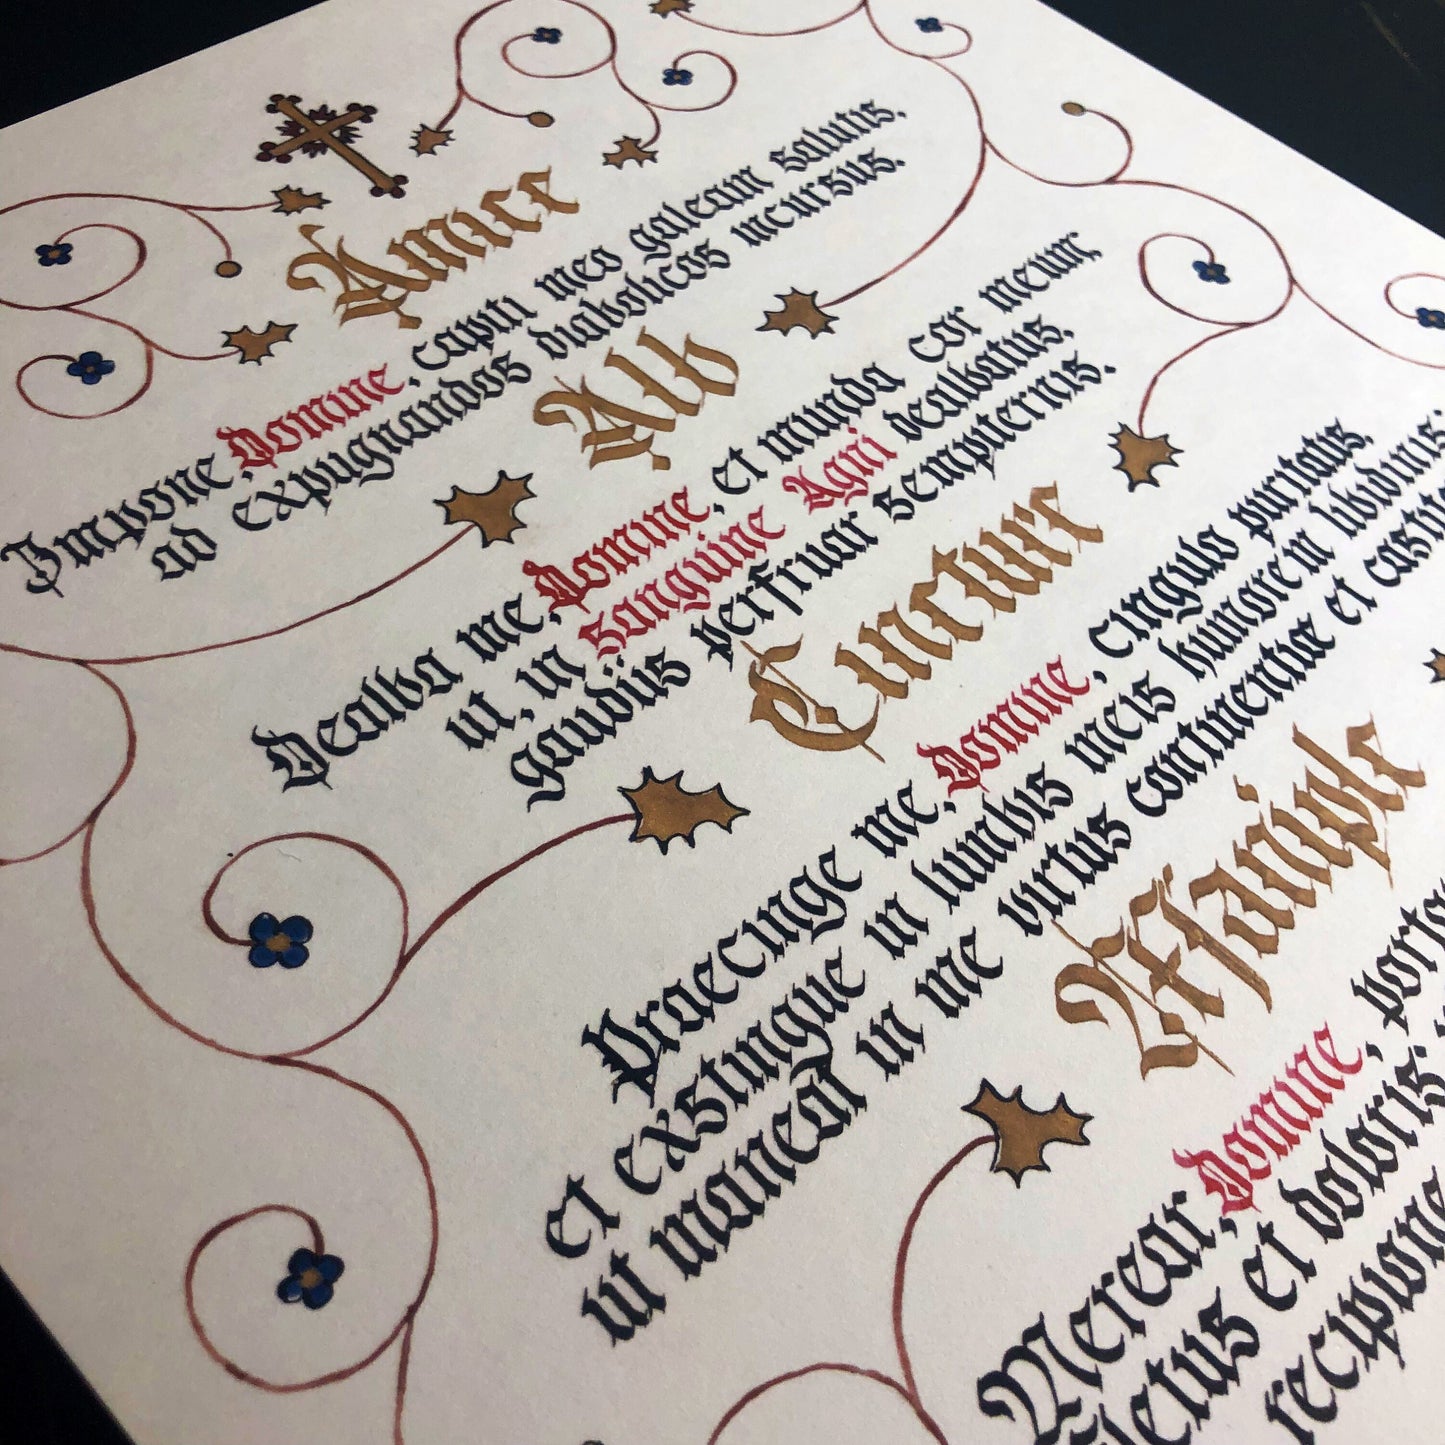 Amice
Impone, Domine, capiti meo galeam salutis,
ad expugnandos diabolicos incursus.
Alb
Dealba me, Domine, et munda cor meum;
ut, in Sanguine Agni dealbatus,
gaudiis perfruar sempiternis.
Cincture
Praecinge me, Domine, cingulo puritatis,
et exstingue in lumbis meis humorem libidinis;
ut maneat in me virtus continentiæ et
Maniple
Merear, Domine,
fletus et doloris: